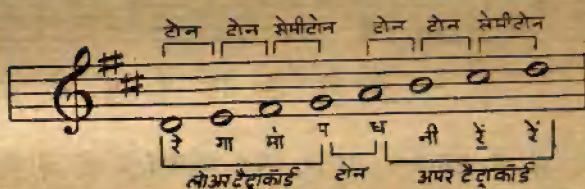 टोन टोन सेमीटोन टोन टोन सेमीटोन
रे गा मां प ध नी रें रें
लोअर टैट्राकॉर्ड टोन अपर टैट्राकॉर्ड